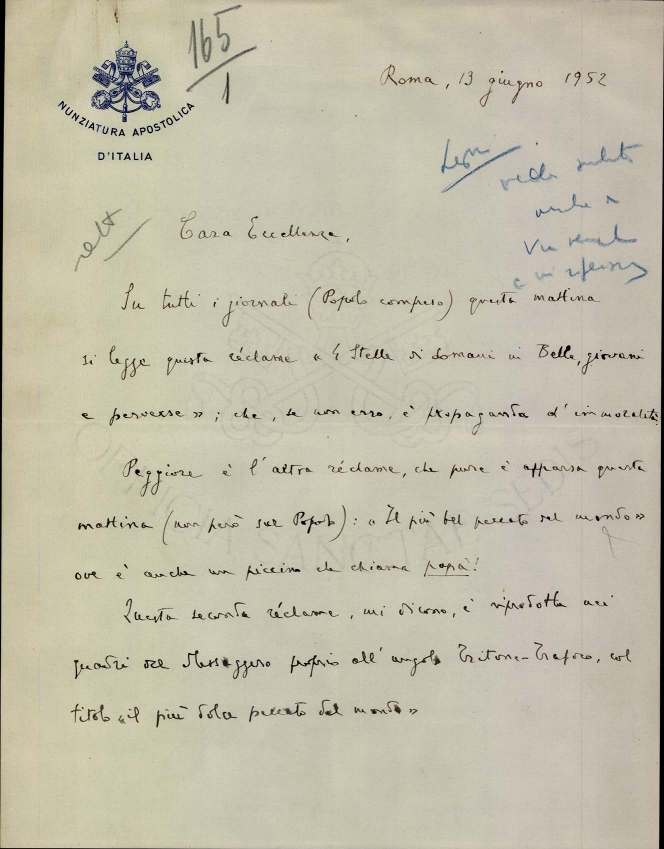 165
1
NUNZIATURA APOSTOLICA
D'ITALIA
Roma, 13 giugno 1952
anche a
Cara Eccellenza,
Su tutti i giornali (Popolo compreso) questa mattina
si legge questa réclame « 4 Stelle di domani in Belle, giovani
e perverse » ; che, se non erro, è propaganda d'immoralità.
Peggiore è l'altra réclame, che pure è apparsa questa
mattina (non però sul Popolo): « Il più bel peccato del mondo »
ove è anche un piccino che chiama papà!
Questa seconda réclame, mi dicono, è riprodotta nei
quadri del Messaggero proprio all'angolo Tritone-Traforo, col
titolo « il più dolce peccato del mondo »
OFFICIA SANCTAE SEDIS